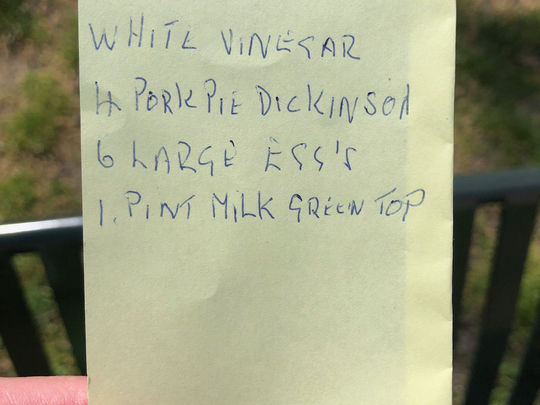 WHITE VINEGAR
4 PORK PIE DICKINSON
6 LARGE EGG'S
1. PINT MILK GREEN TOP